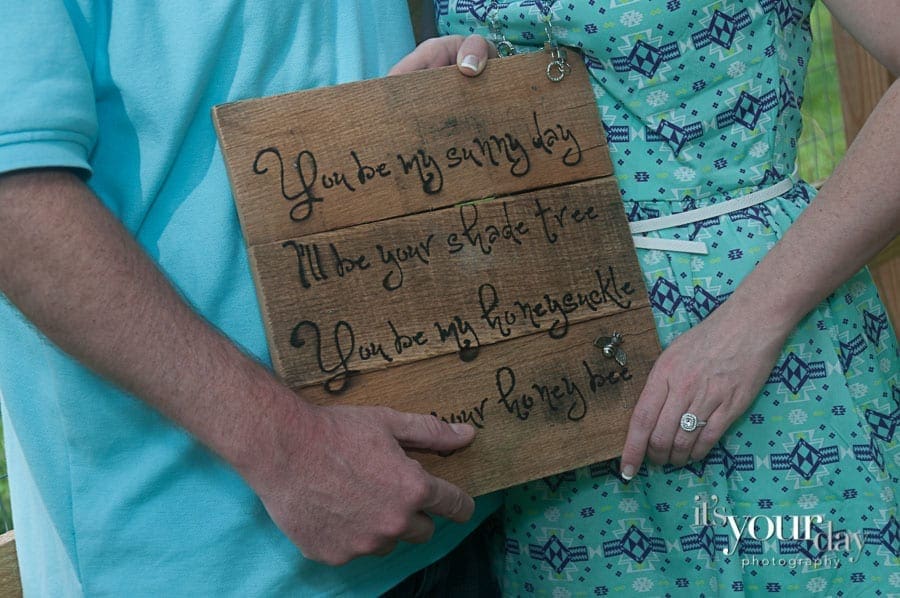 You be my sunny day
I'll be your shade tree
You be my honeysuckle
your honey bee
it's your day
photography